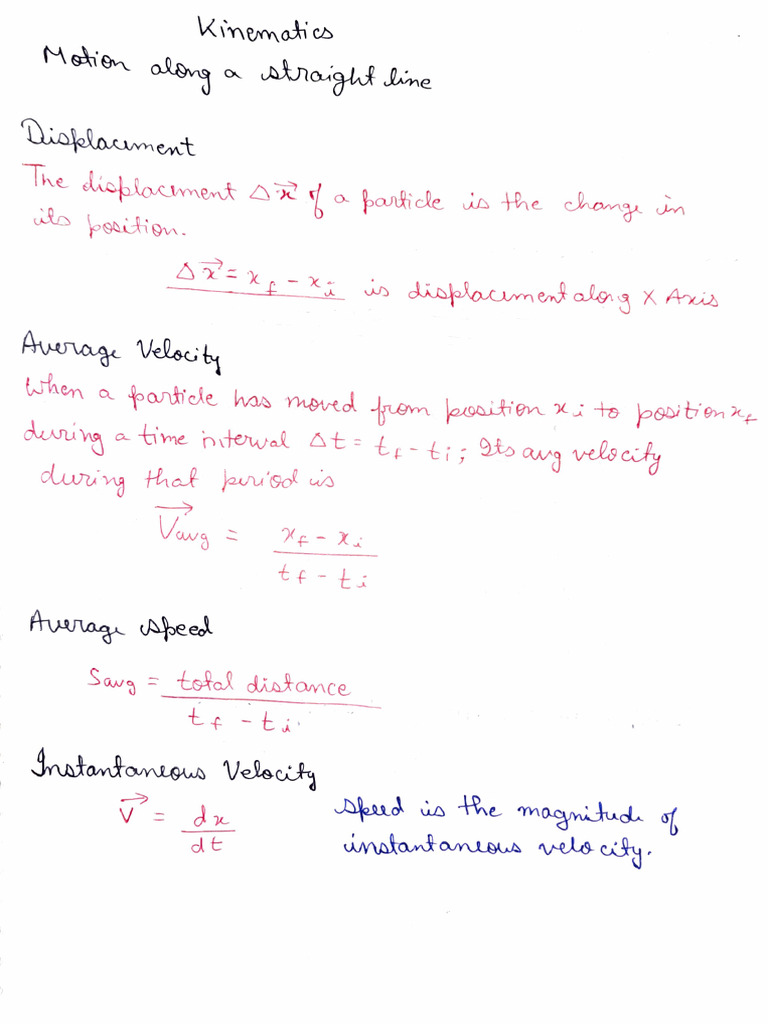 Kinematics
Motion along a straight line
Displacement
The displacement Δx⃗ of a particle is the change in
its position.
Δx⃗ = x_f - x_i is displacement along X Axis
Average Velocity
When a particle has moved from position x_i to position x_f
during a time interval Δt = t_f - t_i; Its avg velocity
during that period is
V⃗avg = (x_f - x_i) / (t_f - t_i)
Average speed
Savg = total distance / (t_f - t_i)
Instantaneous Velocity
V⃗ = dx/dt
speed is the magnitude of
instantaneous velocity.